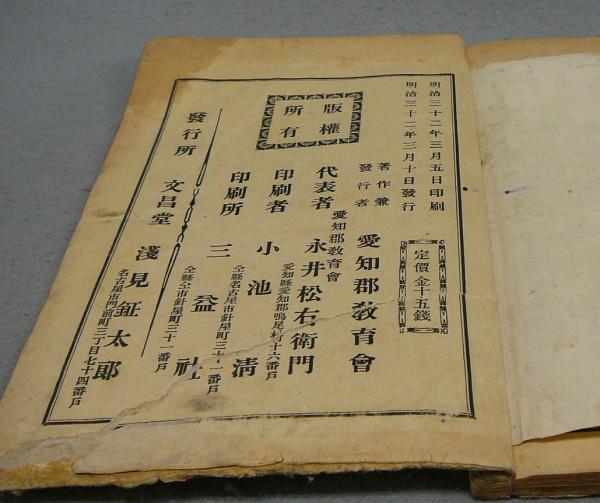 明治三十二年三月五日印刷
明治三十二年三月十日發行
定價金十五錢
版權所有
著作兼發行者 愛知郡敎育會
愛知郡敎育會
代表者 永井松右衛門
愛知縣愛知郡鳴尾村十六番戶
印刷者 小池淸
仝縣名古屋市針屋町三十一番戶
印刷所 三益社
仝縣仝市針屋町三十一番戶
發行所 文昌堂 淺見鉦太郞
名古屋市門前町三丁目七十四番戶